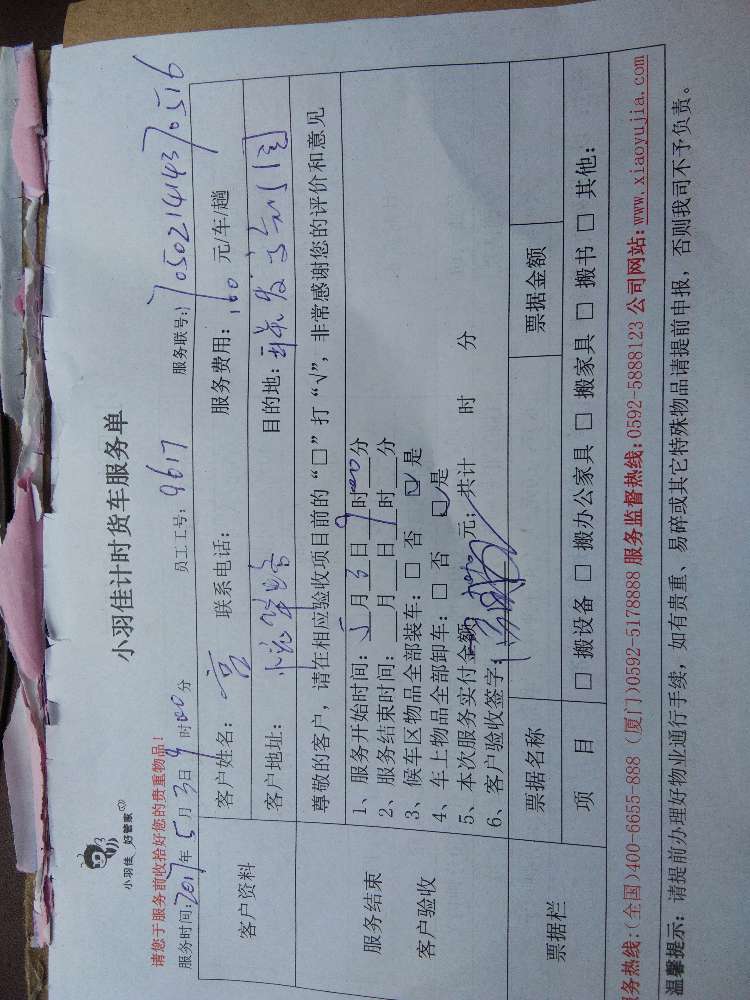 小羽佳计时货车服务单
小羽佳 好管家
请您于服务前收拾好您的贵重物品!
服务时间:2017年5月3日9时00分 员工工号:9617 服务联号:1705021414370516
客户资料
客户姓名: 联系电话: 服务费用:160元/车/趟
客户地址: 目的地:
尊敬的客户,请在相应验收项目前的“□”打“√”,非常感谢您的评价和意见
服务结束
客户验收
1、服务开始时间:5月3日9时00分
2、服务结束时间:__月__日__时__分
3、候车区物品全部装车:□ 否 ☑ 是
4、车上物品全部卸车:□ 否 ☑ 是
5、本次服务实付金额 元;共计 时 分
6、客户验收签字:
票据栏
票据名称 票据金额
项 目 □ 搬设备 □ 搬办公家具 □ 搬家具 □ 搬书 □ 其他:
务热线:(全国)400-6655-888 (厦门)0592-5178888 服务监督热线:0592-5888123 公司网站:www.xiaoyujia.com
温馨提示:请提前办理好物业通行手续,如有贵重、易碎或其它特殊物品请提前申报,否则我司不予负责。